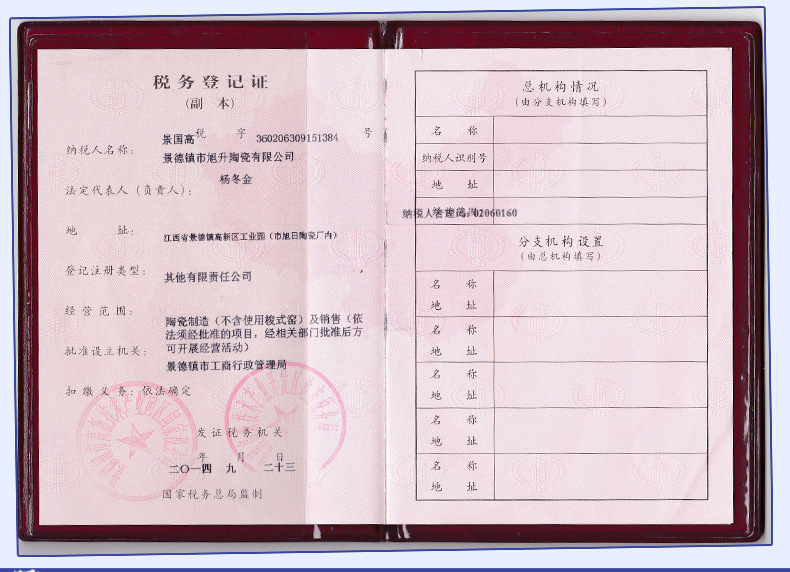 税务登记证
(副 本)
景国高 税 字 360206309151384 号
纳税人名称: 景德镇市旭升陶瓷有限公司
法定代表人(负责人): 杨冬金
地 址: 江西省景德镇高新区工业园(市旭日陶瓷厂内)
登记注册类型: 其他有限责任公司
经营范围: 陶瓷制造(不含使用梭式窑)及销售(依
法须经批准的项目,经相关部门批准后方
可开展经营活动)
批准设立机关: 景德镇市工商行政管理局
扣缴义务:依法确定
发证税务机关
二〇一四 年 九 月 二十三 日
国家税务总局监制
总机构情况
(由分支机构填写)
名 称
纳税人识别号
地 址
纳税人管理码:02060160
分支机构设置
(由总机构填写)
名 称
地 址
名 称
地 址
名 称
地 址
名 称
地 址
名 称
地 址